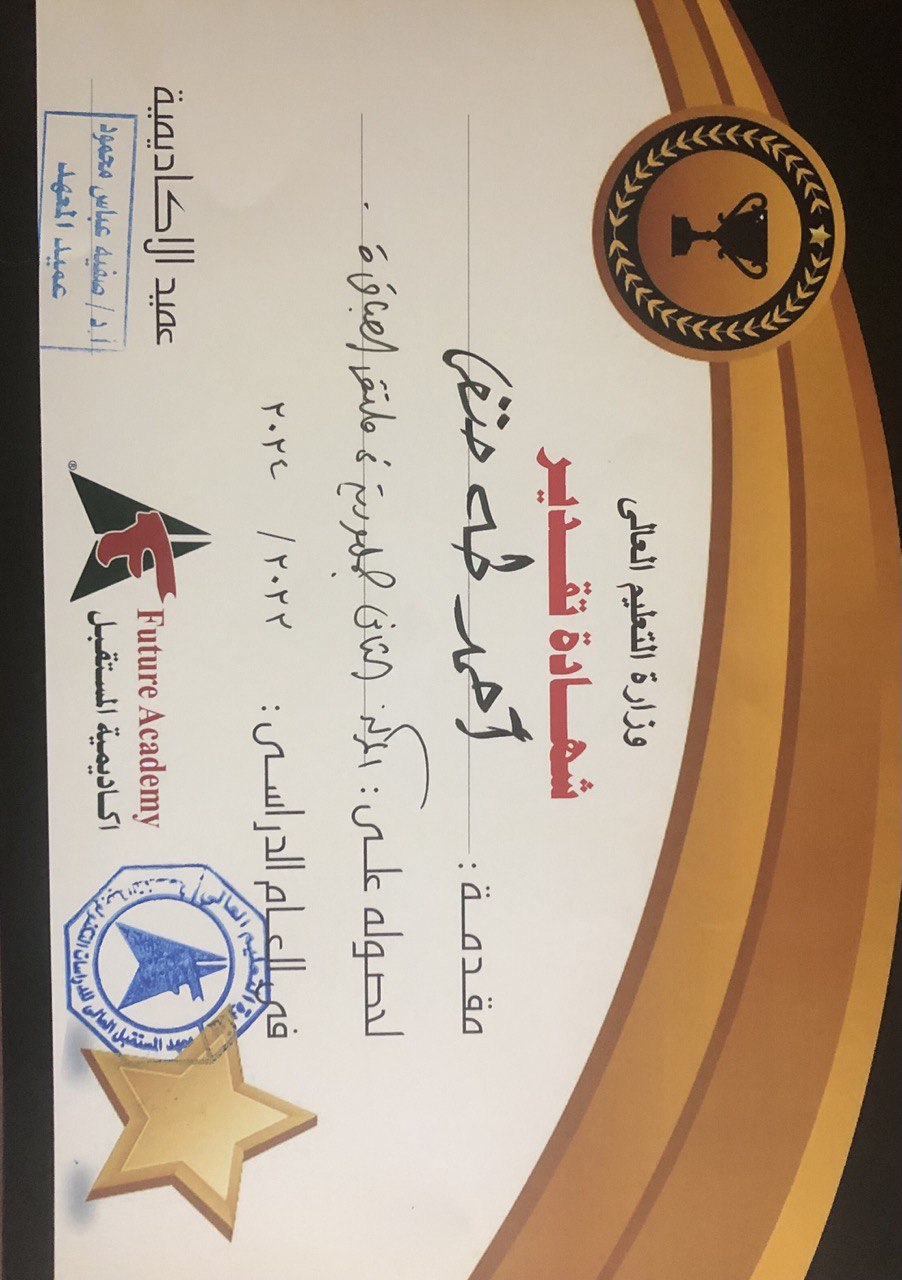 وزارة التعليم العالى
شهادة تقدير
مقدمة : أحمد طه
لحصوله على : المركز الثانى جمهورية فى ملتقى العباقرة .
فى العام الدراسى : ٢٠٢٢ / ٢٠٢٤
عميد الاكاديمية
أ.د/ صفيه عباس محمود
عميد المعهد
Future Academy
اكاديمية المستقبل
®
وزارة التعليم العالى
معهد المستقبل العالى للدراسات التكنولوجية